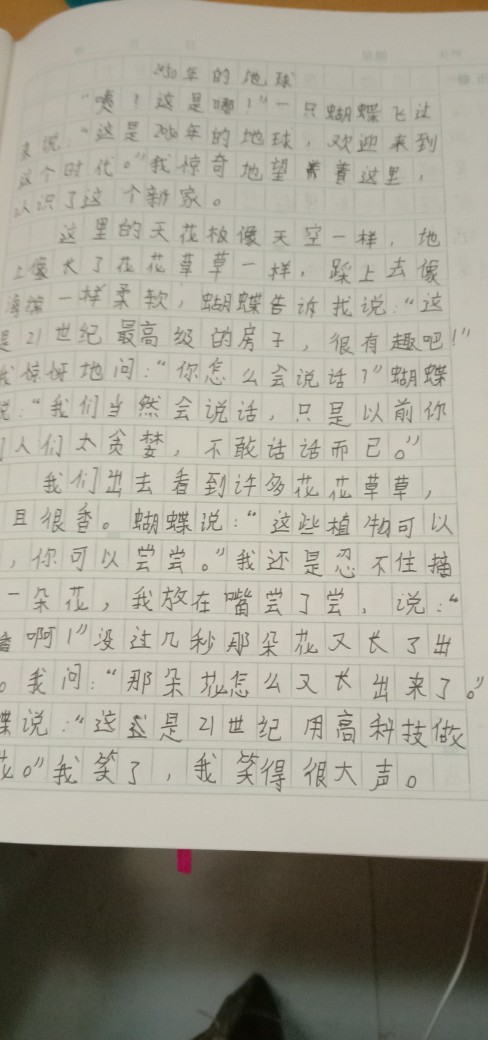 2050年的地球
"咦!这是哪!"一只蝴蝶飞过
来说:"这是2050年的地球,欢迎来到
这个时代。"我惊奇地望着这里,
认识了这个新家。
这里的天花板像天空一样,地
上像长了花花草草一样,踩上去像
海绵一样柔软,蝴蝶告诉我说:"这
是21世纪最高级的房子,很有趣吧!"
我惊讶地问:"你怎么会说话?"蝴蝶
说:"我们当然会说话,只是以前你
们人们太贪婪,不敢话话而已。"
我们出去看到许多花花草草,
且很香。蝴蝶说:"这些植物可以
,你可以尝尝。"我还是忍不住描
一朵花,我放在嘴尝了尝,说:"
香啊!"没过几秒那朵花又长了出
。我问:"那朵花怎么又长出来了。"
蝶说:"这是21世纪用高科技做
花。"我笑了,我笑得很大声。